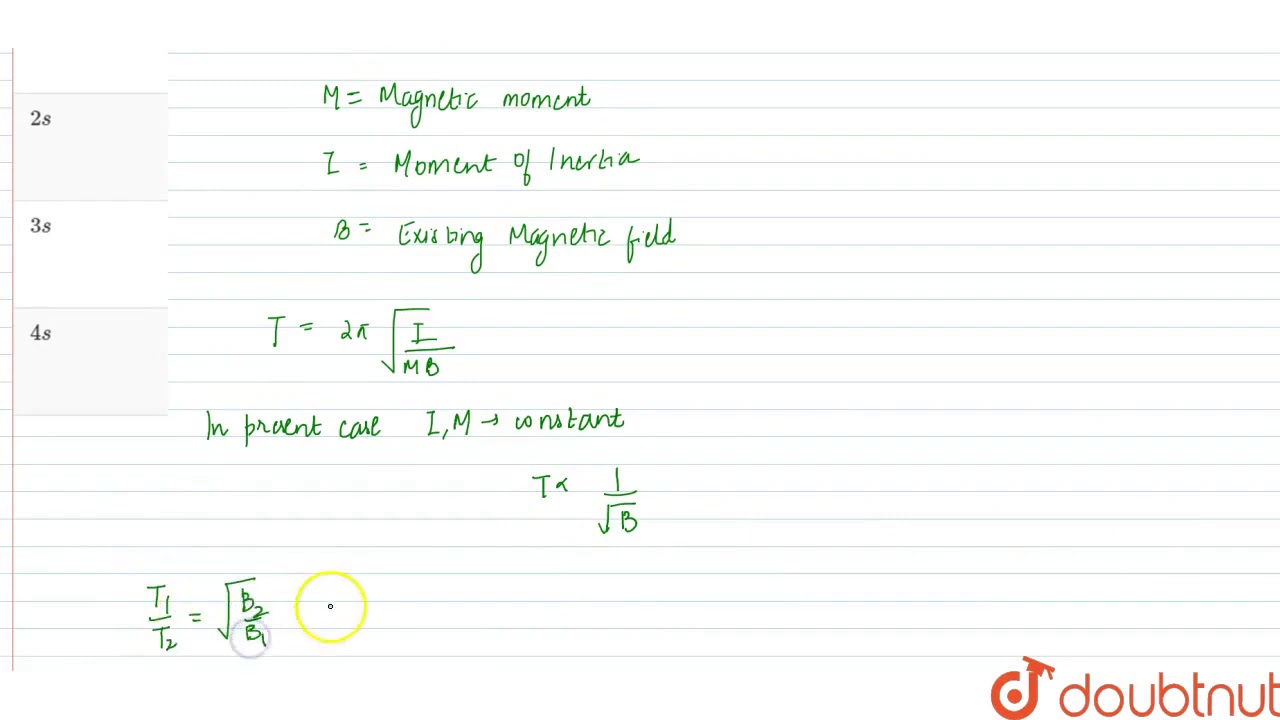 M = Magnetic moment
2s
I = Moment of Inertia
3s
B = Existing Magnetic field
4s
T = 2π √(I/MB)
In present case I, M → constant
T ∝ 1/√B
T₁/T₂ = √(B₂/B₁)
doubtnut